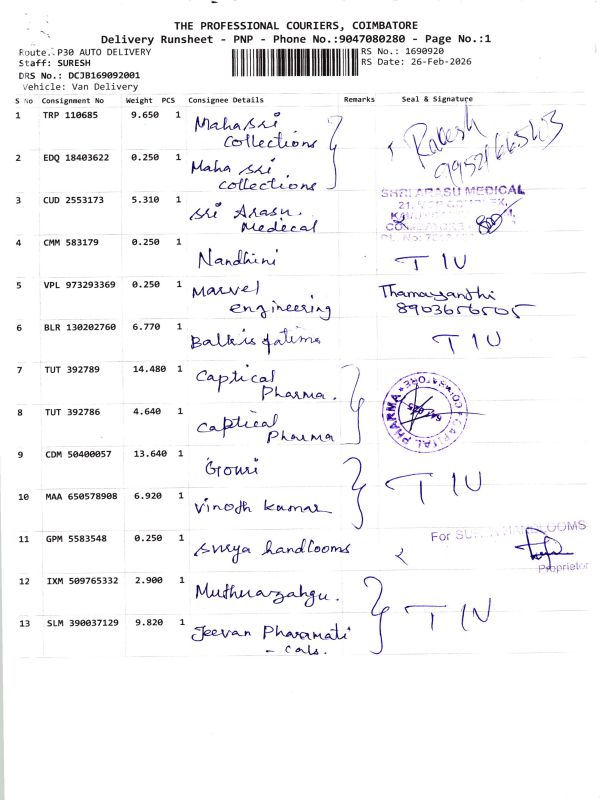 THE PROFESSIONAL COURIERS, COIMBATORE
Delivery Runsheet - PNP - Phone No.:9047080280 - Page No.:1
Route.. P30 AUTO DELIVERY RS No.: 1690920
Staff: SURESH RS Date: 26-Feb-2026
DRS No.: DCJB169092001
Vehicle: Van Delivery
S No Consignment No Weight PCS Consignee Details Remarks Seal & Signature
1 TRP 110685 9.650 1 Maha sri
collections
Rakesh
2 EDQ 18403622 0.250 1 Maha sri
collections
3 CUD 2553173 5.310 1 Sri Arasu
Medical
SHRI ARASU MEDICAL
4 CMM 583179 0.250 1 Nandhini TIU
5 VPL 973293369 0.250 1 Marvel
engineering
Thamayanthi
8903656505
6 BLR 130202760 6.770 1 Balkis fatima TIU
7 TUT 392789 14.480 1 Captical
Pharma.
8 TUT 392786 4.640 1 Captical
Pharma
CAPITAL PHARMA COIMBATORE
9 CDM 50400057 13.640 1 Gowri
TIU
10 MAA 650578908 6.920 1 Vinoth kumar
11 GPM 5583548 0.250 1 Surya handlooms
For
Proprietor
12 IXM 509765332 2.900 1 Muthurazahgu.
TIN
13 SLM 390037129 9.820 1 Jeevan Pharamati
- cals.